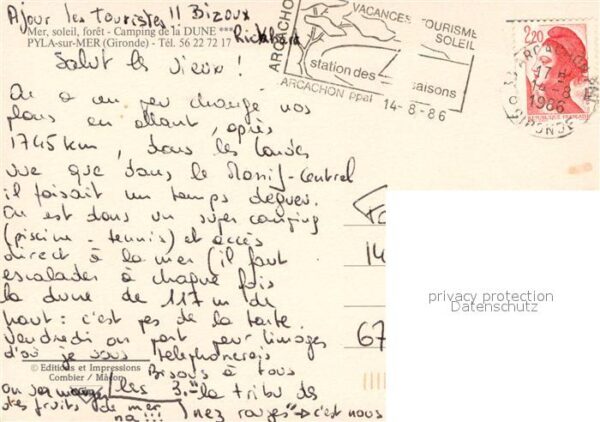 Ajour les Touristes !! Bizoux
Rickhard
Mer, soleil, forêt - Camping de la DUNE ***
PYLA-sur-MER (Gironde) - Tél. 56 22 72 17
ARCACHON
VACANCES TOURISME
SOLEIL
station des saisons
ARCACHON ppal 14-8-86
2,20
REPUBLIQUE FRANCAISE
ARCACHON
17 H
14-8
1986
GIRONDE
Salut les vieux !
On a un peu changé nos
plans en allant, après
1745 km, dans les Landes
vue que dans le Massif-Central
il faisait un temps dégueu.
On est dans un super camping
(piscine - tennis) et accès
direct à la mer (il faut
escalader à chaque fois
la dune de 117 m de
haut : c'est pas de la tarte.
Vendredi on part pour Limoges
d'où je vous telephonerais
© Editions et Impressions
Combier / Mâcon
Bisous à tous
les 3. "la tribu des
nez rouges" → c'est nous
on va manger
des fruits de mer
na !!!
14
67
privacy protection
Datenschutz